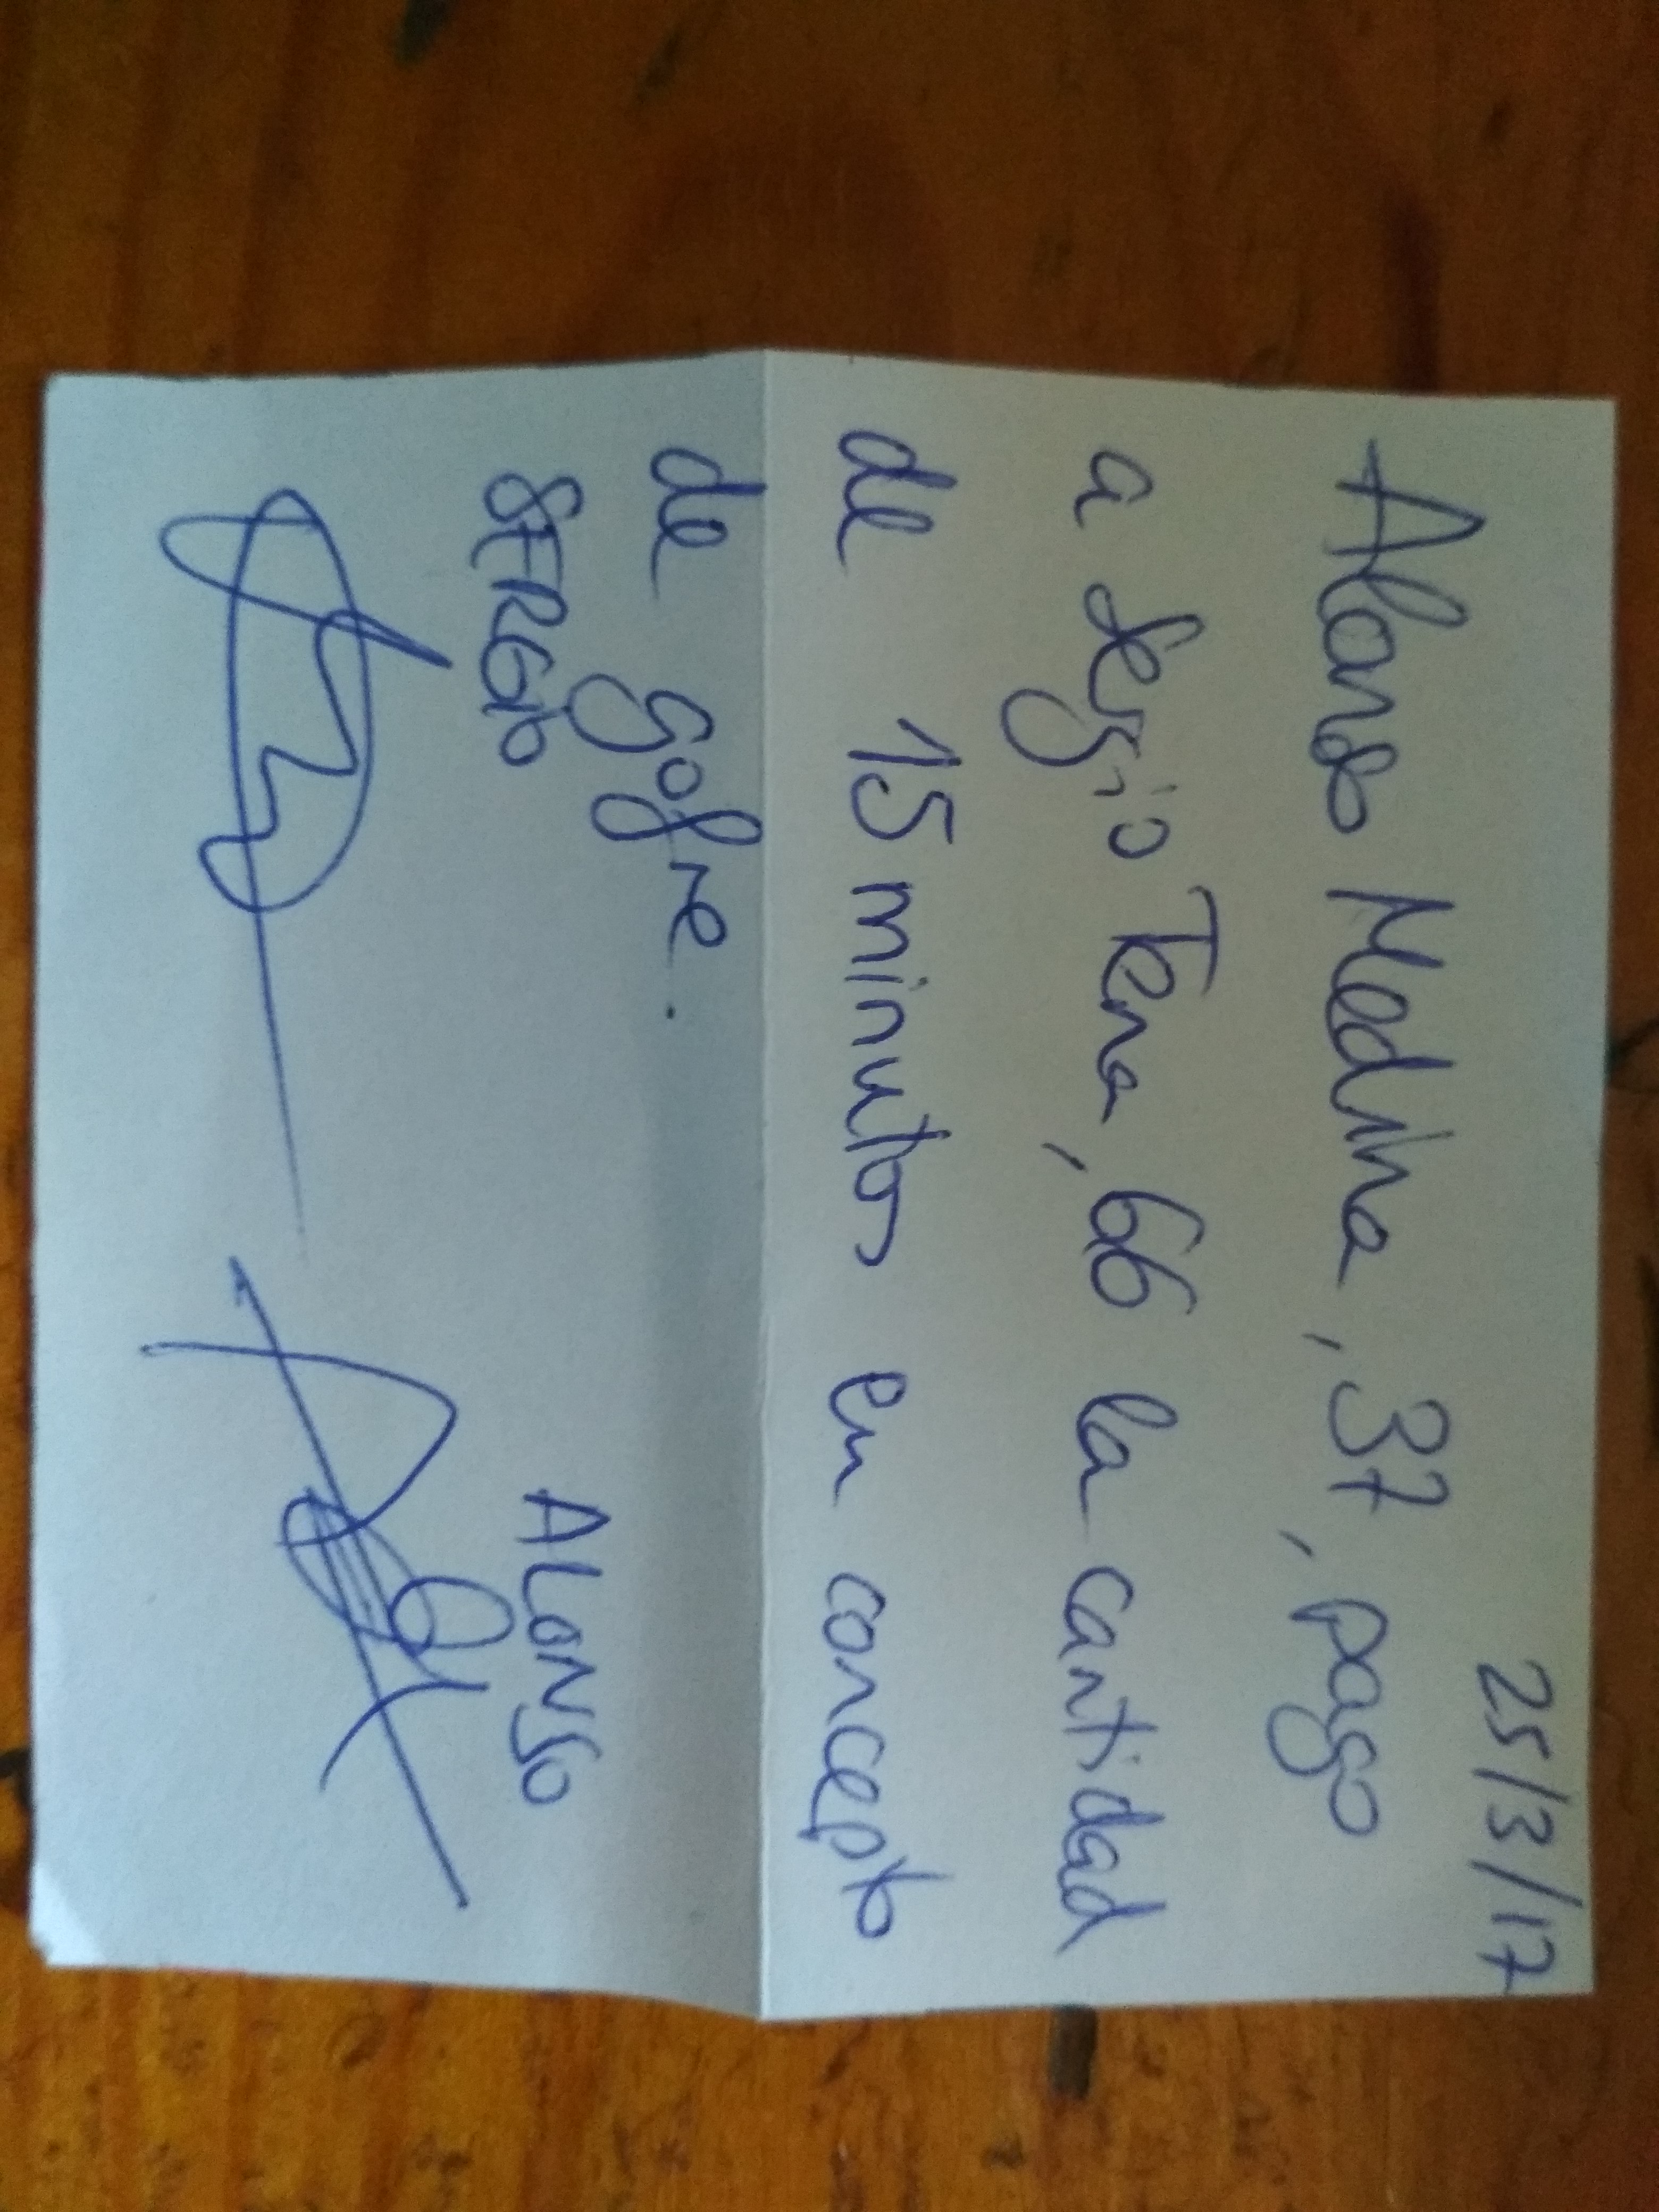 25/3/17
Alonso Medina, 37, pago
a Sergio Tena, 66 la cantidad
de 15 minutos en concepto
de gofre.
SERGIO
ALONSO